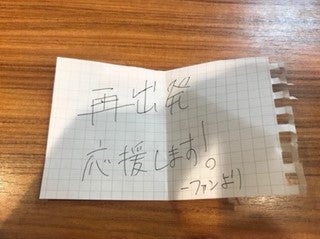 再出発
応援します！。
ーファンより